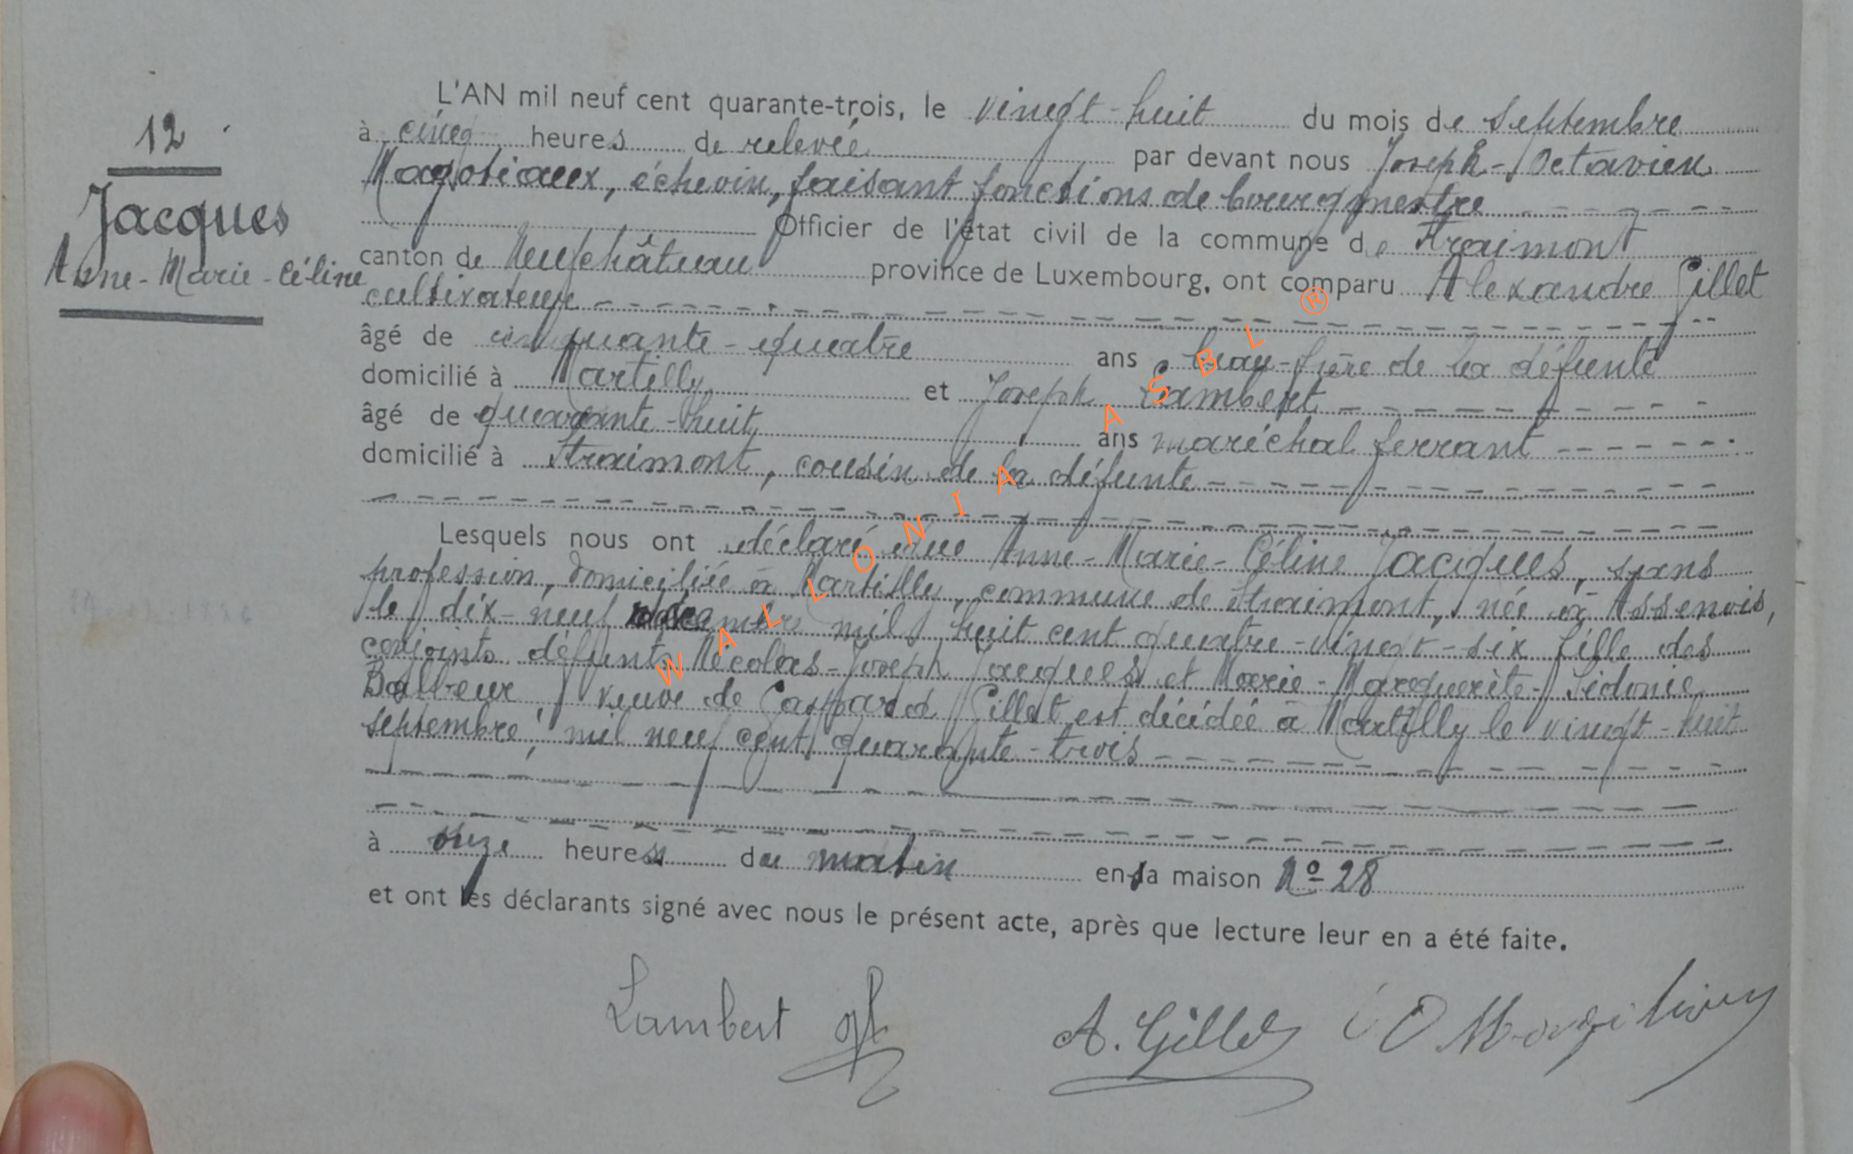 12
Jacques
Anne-Marie-Céline
L'AN mil neuf cent quarante-trois, le vingt-huit du mois de septembre
à cinq heures de relevée par devant nous Joseph-Octavien
Magotiaux, échevin, faisant fonctions de bourgmestre
Officier de l'état civil de la commune de Straimont
canton de Neufchâteau province de Luxembourg, ont comparu Alexandre Gillet
cultivateur
âgé de cinquante-quatre ans beau-frère de la défunte
domicilié à Martilly et Joseph Lambert
âgé de quarante-huit ans maréchal ferrant
domicilié à Straimont, cousin de la défunte
Lesquels nous ont déclaré que Anne-Marie-Céline Jacques, sans
profession, domiciliée à Martilly, commune de Straimont, née à Assenois,
le dix-neuf mil huit cent quatre-vingt-six fille des
conjoints défunts Nicolas-Joseph Jacques et Marie-Marguerite-Sidonie
veuve de Gaspard Gillet est décédée à Martilly le vingt-huit
septembre, mil neuf cent quarante-trois
à onze heures du matin en sa maison N° 28
et ont les déclarants signé avec nous le présent acte, après que lecture leur en a été faite.
Lambert A. Gillet
WALLONIA ASBL ®